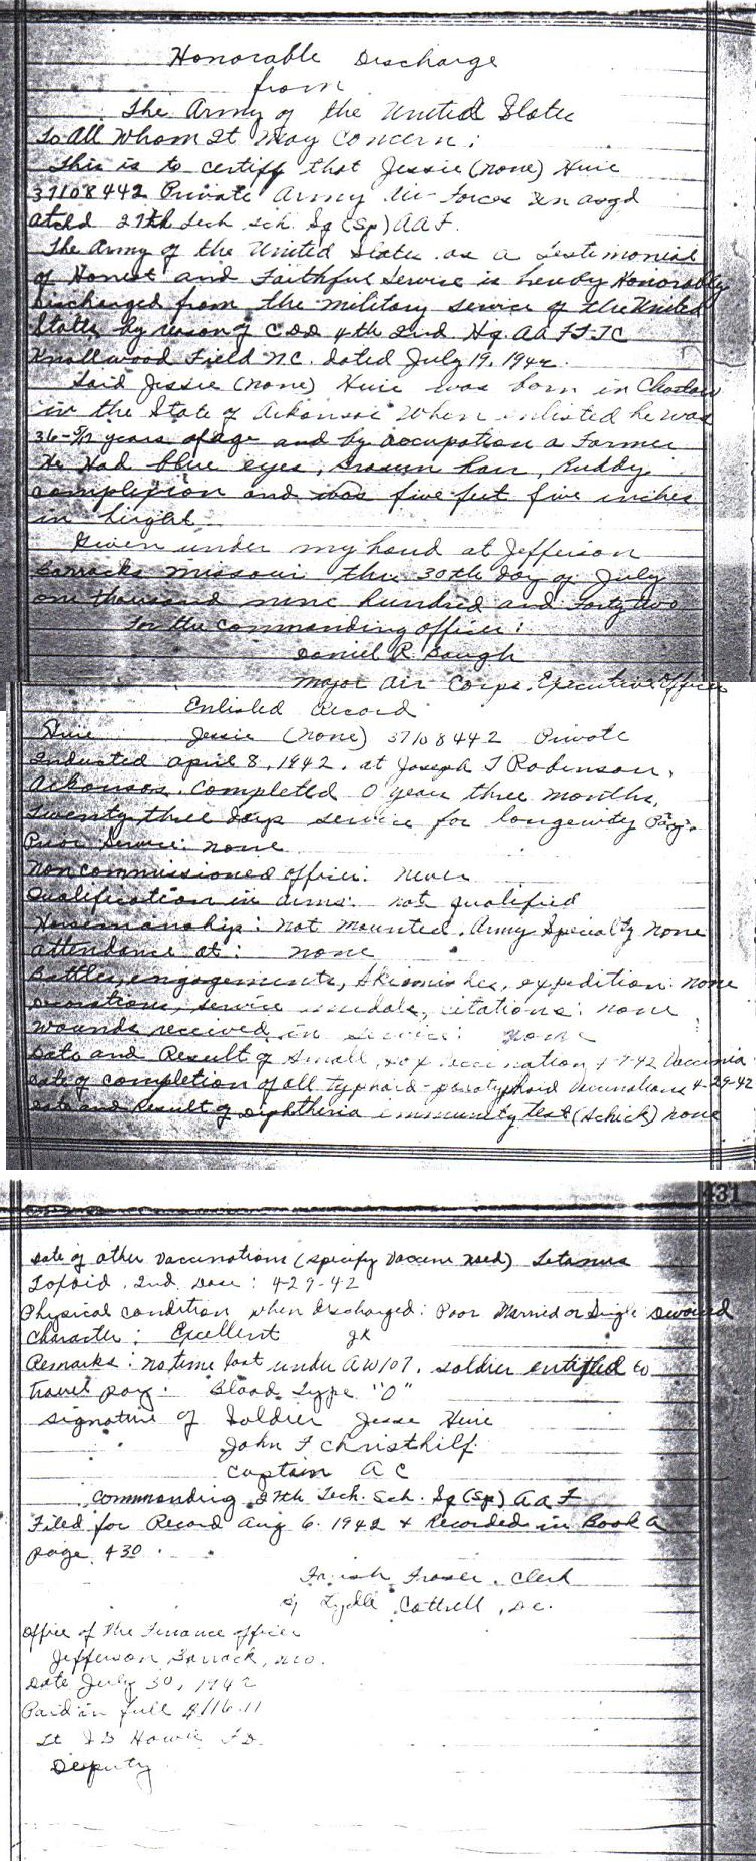 Honorable Discharge
from
The Army of the United States
To All Whom It May Concern:
This is to certify that Jessie (none) Huie
37108442 Private Army Air Forces Unasgd
Atchd 27th Tech Sch. Sq (Sp) A A F.
The Army of the United States as a Testimonial
of Honest and Faithful Service is hereby Honorably
Discharged from the military service of the United
States by reason of C D D 4th Ind Hq. A A F T T C
Knollwood Field N.C. dated July 19, 1942.
Said Jessie (none) Huie was born in Choctaw
in the State of Arkansas When enlisted he was
36-5/12 years of age and by occupation a Farmer
He Had blue eyes, brown hair, Ruddy
complexion and was five feet five inches
in hight
Given under my hand at Jefferson
Barracks Missouri this 30th day of July
one thousand nine hundred and Forty two
For the commanding officer:
Daniel R. Baugh
Major Air Corps, Executive Officer
Enlisted Record
Huie Jessie (none) 37108442 Private
Inducted April 8, 1942, at Joseph T Robinson,
Arkansas. Completed 0 year three months,
Twenty three days service for longevity Pay.
Prior Service: none
Noncommissioned officer: never
Qualification in arms: not qualified
Horsemanship: Not Mounted. Army Specialty none
Attendance at: none
Battles, engagements, skirmishes, expedition: none
Decorations, service medals, citations: none
Wounds received in service: none
Date and Result of small pox vaccination 4-9-42 Vaccinia
Date of completion of all typhoid-paratyphoid vaccinations 4-29-42
Date and result of diphtheria immunity test (Schick) none
431
Date of other Vaccinations (specify Vaccine used) Tetanus
Toxoid. 2nd Dose: 4-29-42
Physical condition when discharged: Poor Married or Single Divorced
Character: Excellent
Remarks: no time lost under AW 107. soldier entitled to
travel pay. Blood type "O"
Signature of Soldier Jesse Huie
John F Christhilf
Captain A C
Commanding 27th Tech. Sch. Sq (Sp) A A F
Filed for Record Aug 6. 1942 & Recorded in Book A
page 430.
Fraser. Clerk
Cottrell, D.C.
Office of the Finance officer
Jefferson Barrack, Mo.
Date July 30, 1942
Paid in full $116.11
Lt Howie F D.
Deputy